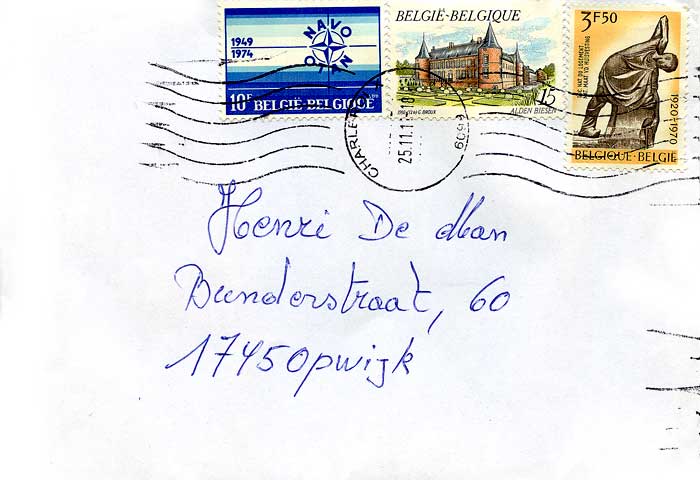 NAVO
OTAN
1949
1974
10F BELGIË-BELGIQUE
BELGIË-BELGIQUE
15
ALDEN BIESEN
3F50
1920-1970
BELGIQUE-BELGIË
CHARLE
25.11.1
6099
Henri De Man
Bunderstraat, 60
1745 Opwijk